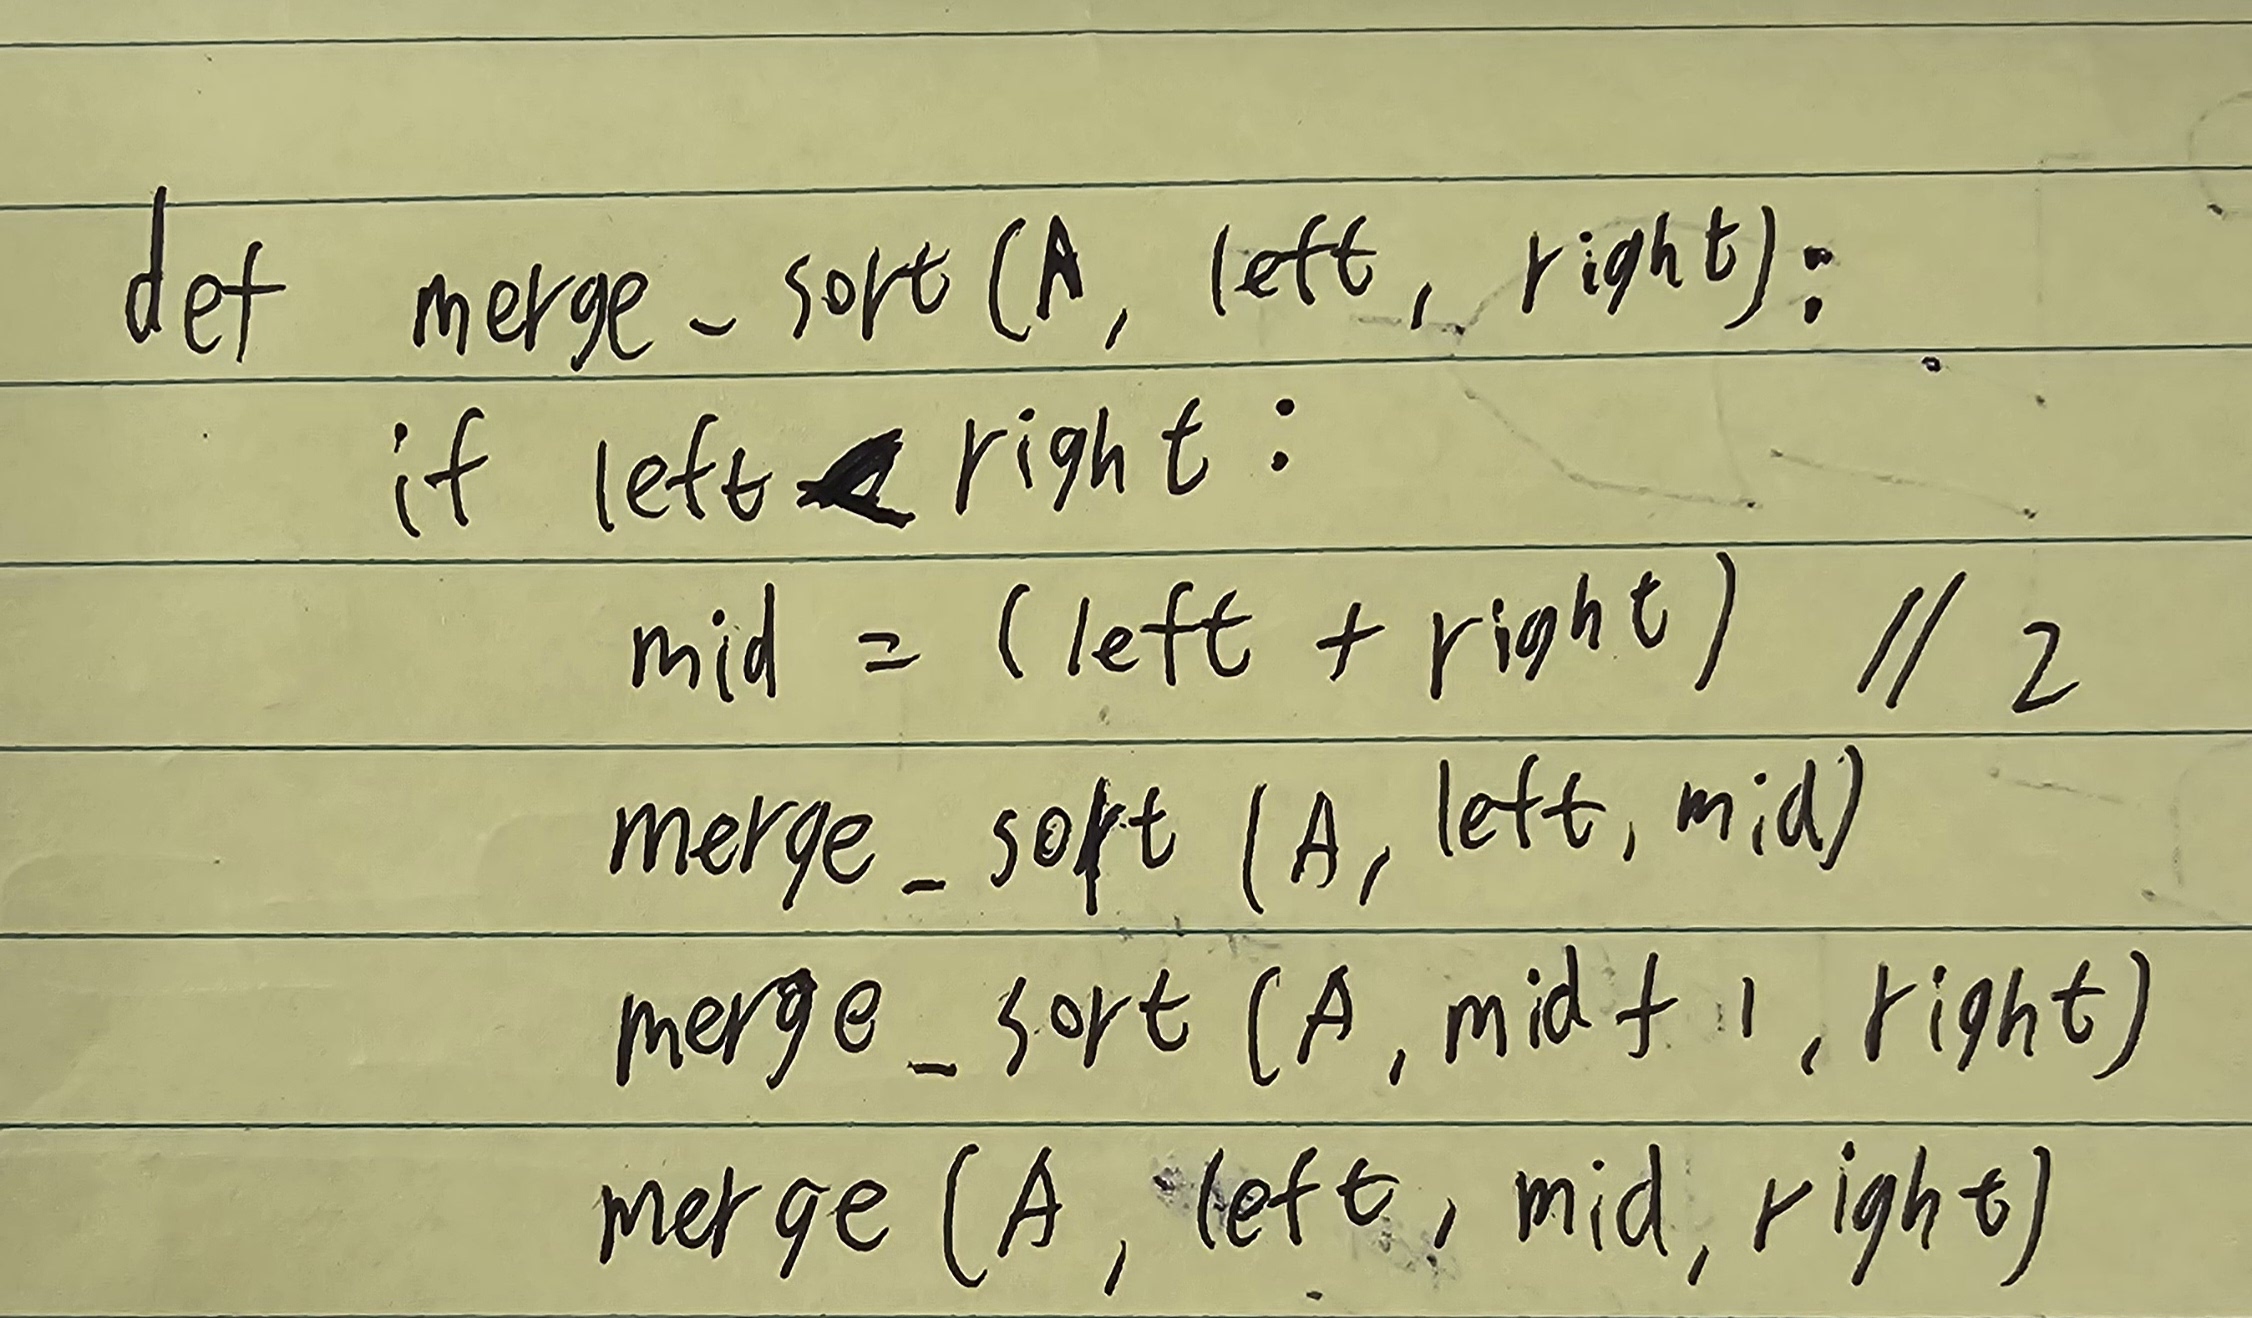 def merge_sort(A, left, right):
if left < right:
mid = (left + right) // 2
merge_sort (A, left, mid)
merge_sort (A, mid + 1, right)
merge (A, left, mid, right)